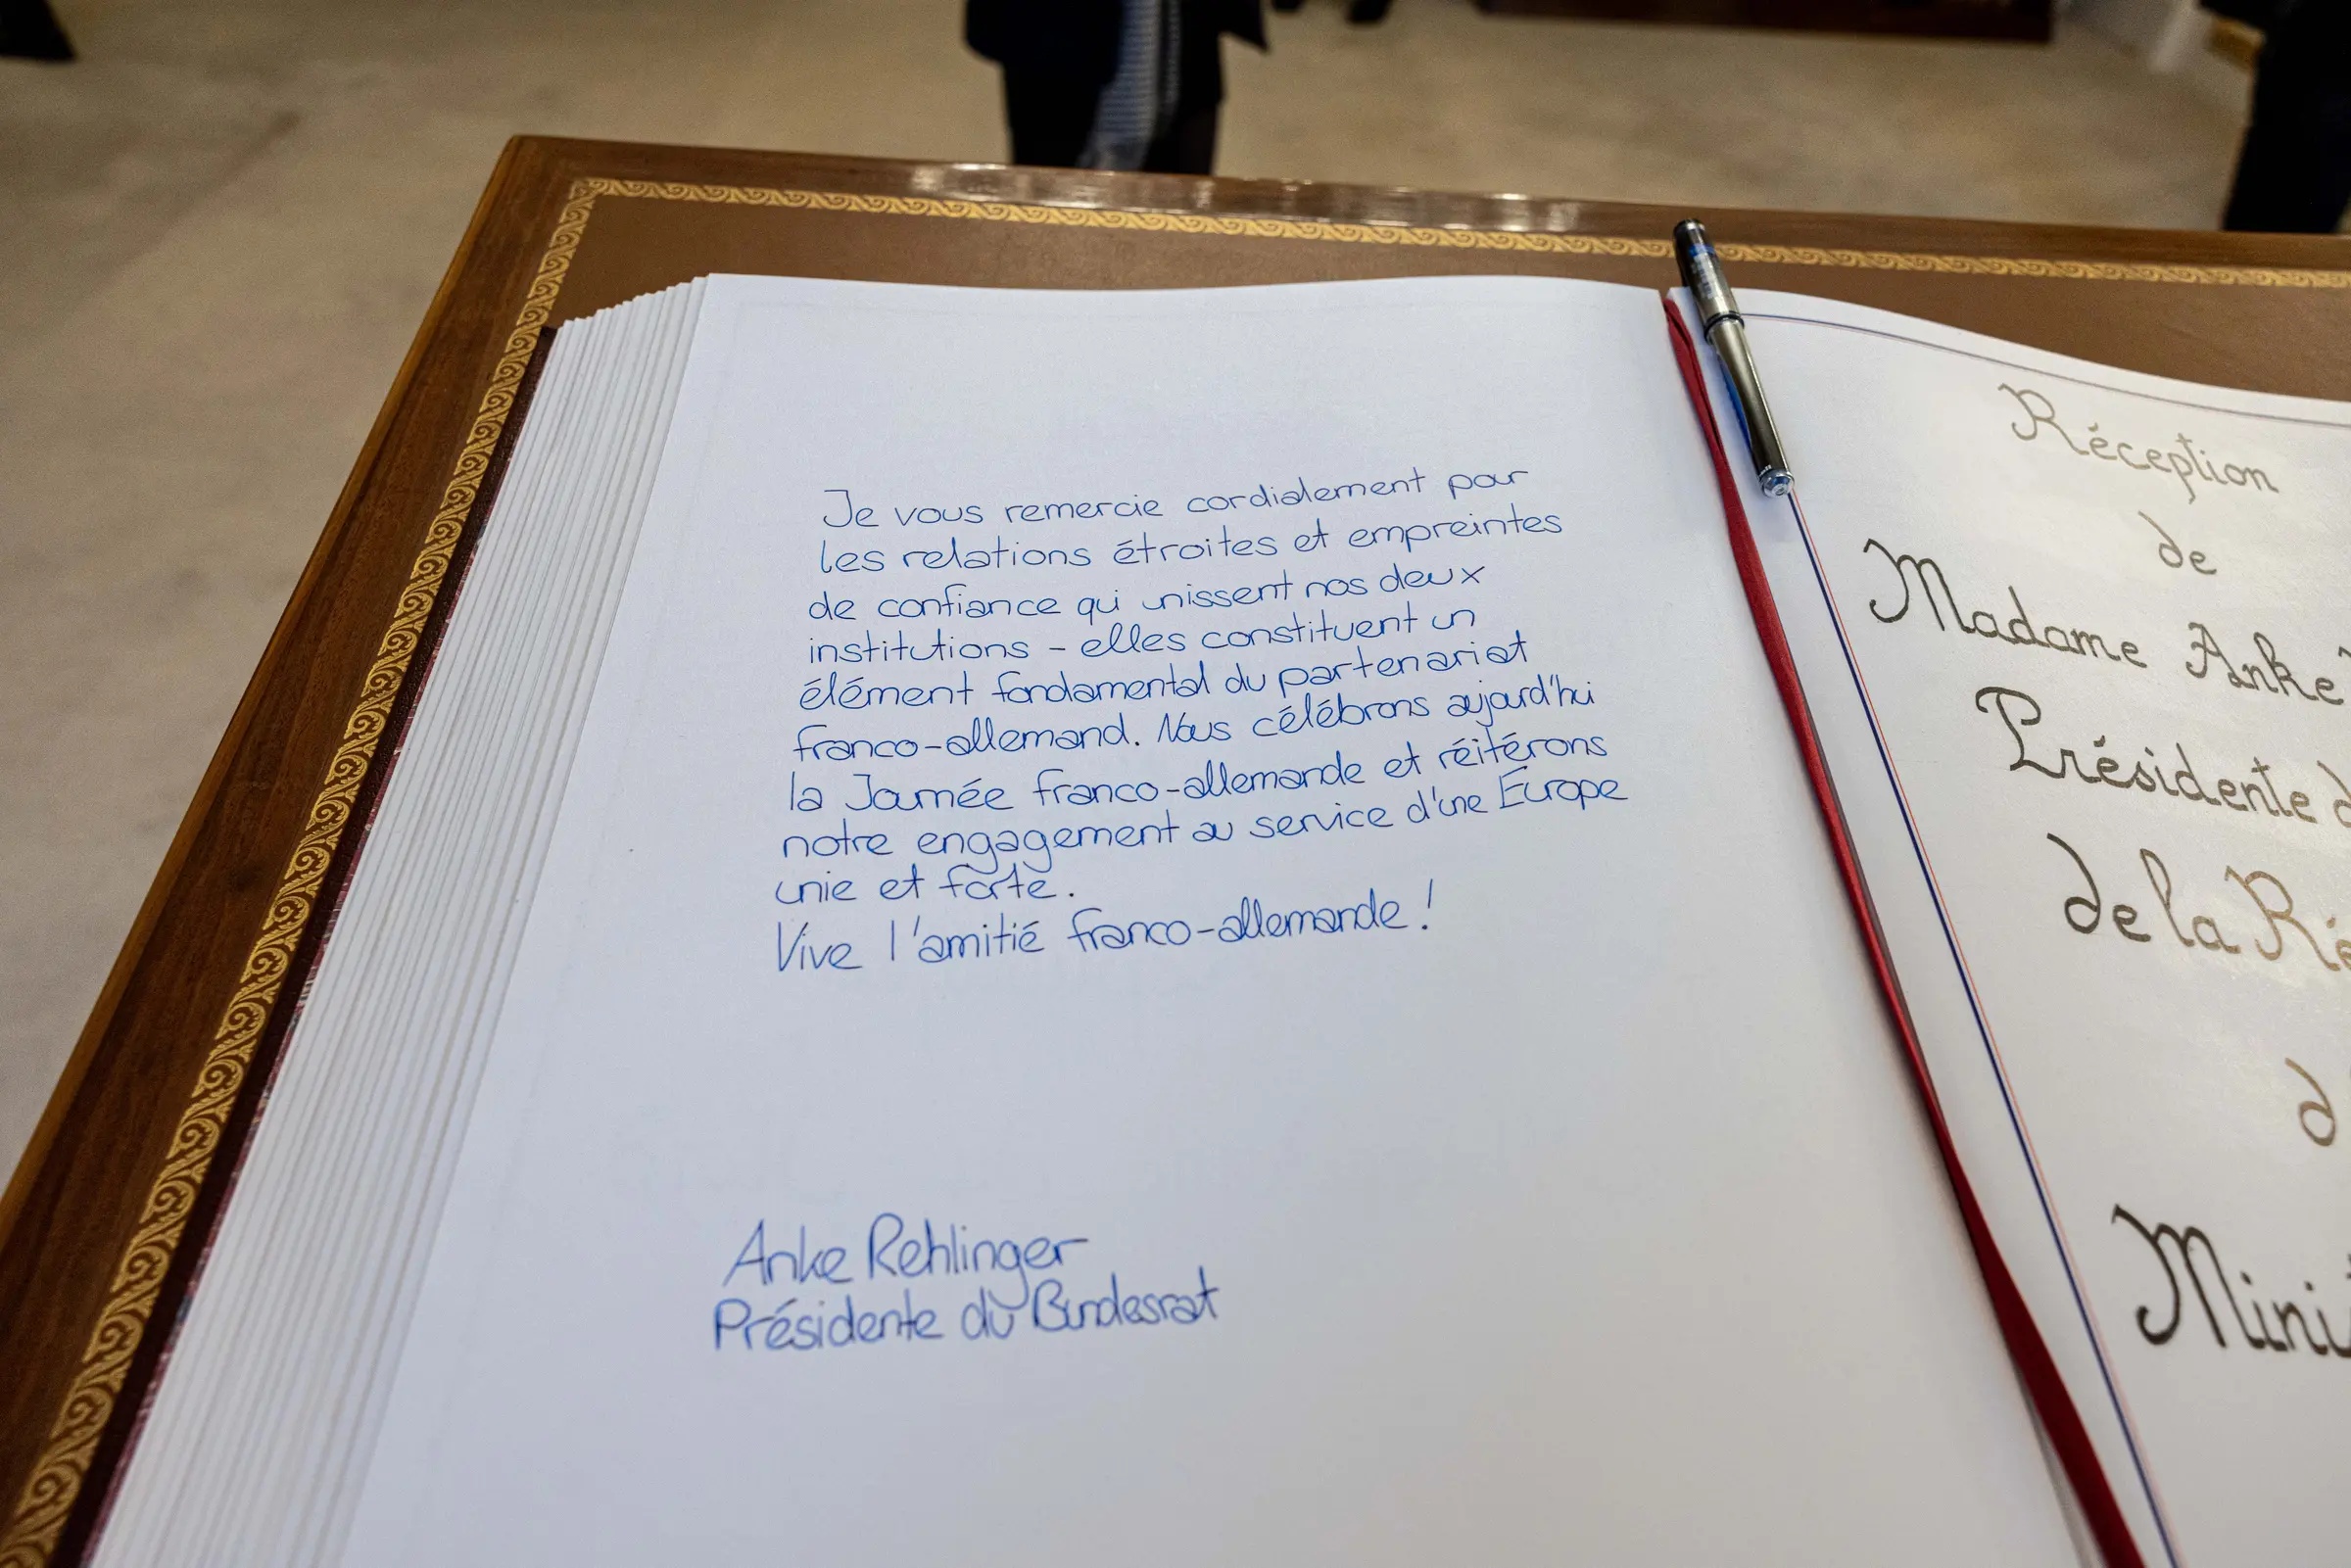 Je vous remercie cordialement pour
les relations étroites et empreintes
de confiance qui unissent nos deux
institutions - elles constituent un
élément fondamental du partenariat
franco-allemand. Nous célébrons aujourd'hui
la Journée franco-allemande et réitérons
notre engagement au service d'une Europe
unie et forte.
Vive l'amitié franco-allemande !
Anke Rehlinger
Présidente du Bundesrat
Réception
de
Madame Anke
Présidente d
de la Ré
d
Mini